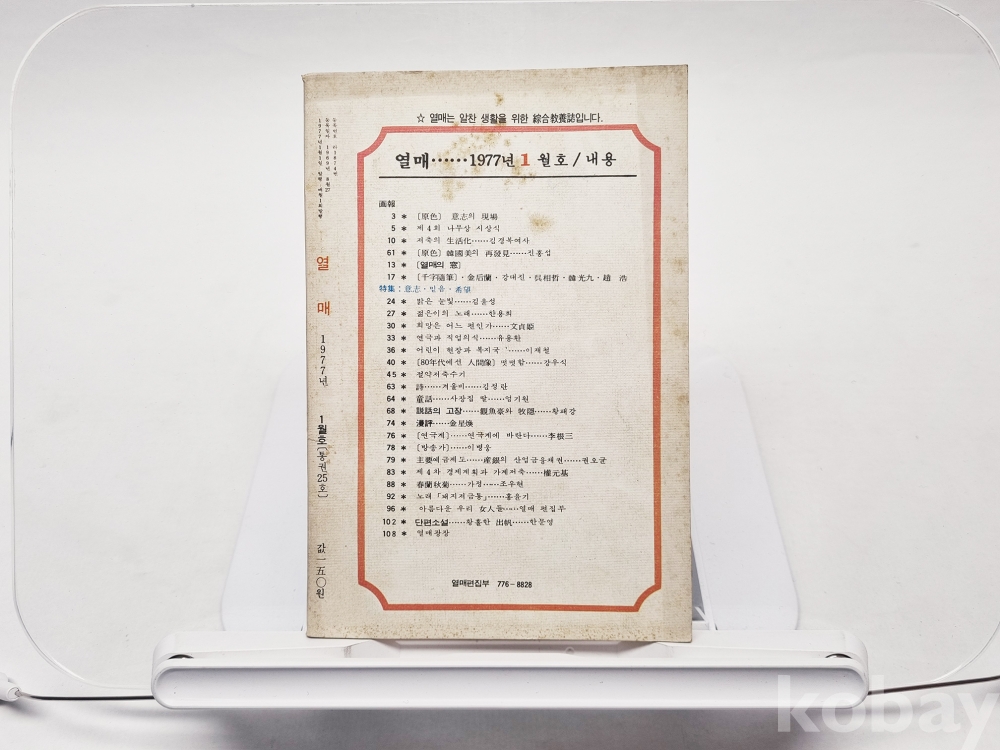 ☆ 열매는 알찬 생활을 위한 綜合教養誌입니다.
열매……1977년 1 월호 / 내용
画報
3 * 〔原色〕 意志의 現場
5 * 제4회 나무상 시상식
10 * 저축의 生活化……김경복여사
61 * 〔原色〕 韓國美의 再發見……진홍섭
13 * 〔열매의 窓〕
17 * 〔千字隨筆〕·金后蘭·강대진·吳相哲·韓光九·趙 浩
特集 : 意志·믿음·希望
24 * 맑은 눈빛……김윤성
27 * 젊은이의 노래……한용희
30 * 희망은 어느 편인가……文貞姬
33 * 연극과 직업의식……유용환
36 * 어린이 헌장과 복지국……이재철
40 * 〔80年代에선 人間像〕 떳떳함……강우식
45 * 절약저축수기
63 * 詩……겨울비……김정란
64 * 童話……사장집 딸……엄기원
68 * 説話의 고장……觀魚臺와 牧隱……황패강
74 * 漫評……金星煥
76 * 〔연극계〕……연극계에 바란다……李根三
78 * 〔방송가〕……이병용
79 * 主要예금제도……産銀의 산업금융채권……권오균
83 * 제4차 경제계획과 가계저축……權元基
88 * 春蘭秋菊……가정……조우현
92 * 노래「돼지저금통」……홍윤기
96 * 아름다운 우리 女人들……열매 편집부
102 * 단편소설……황홀한 出帆……한문영
108 * 열매광장
열매편집부 776-8828
1977년1월1일 발행·매월1회발행
열매
1977년
1월호〔통권25호〕
값 一五〇원
kobay